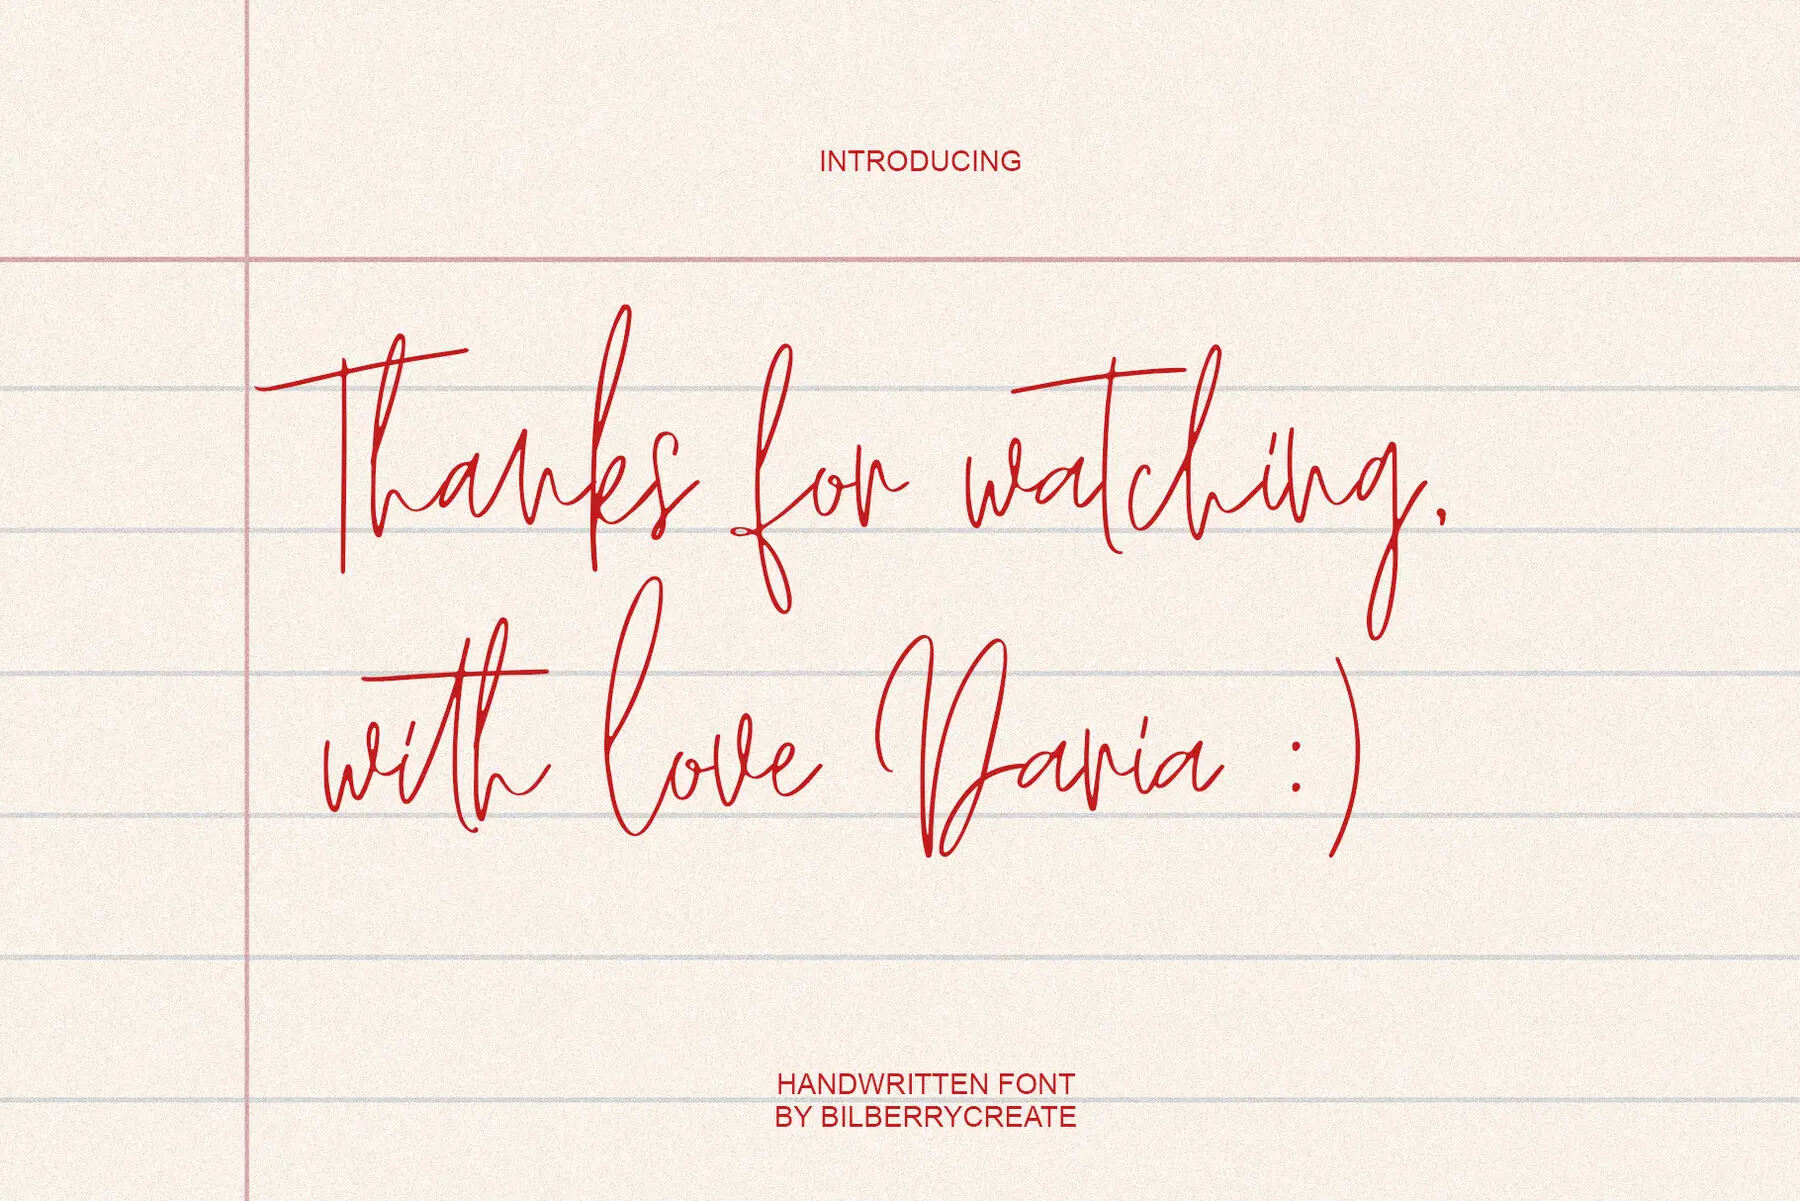 INTRODUCING
Thanks for watching,
with love Daria :)
HANDWRITTEN FONT
BY BILBERRYCREATE